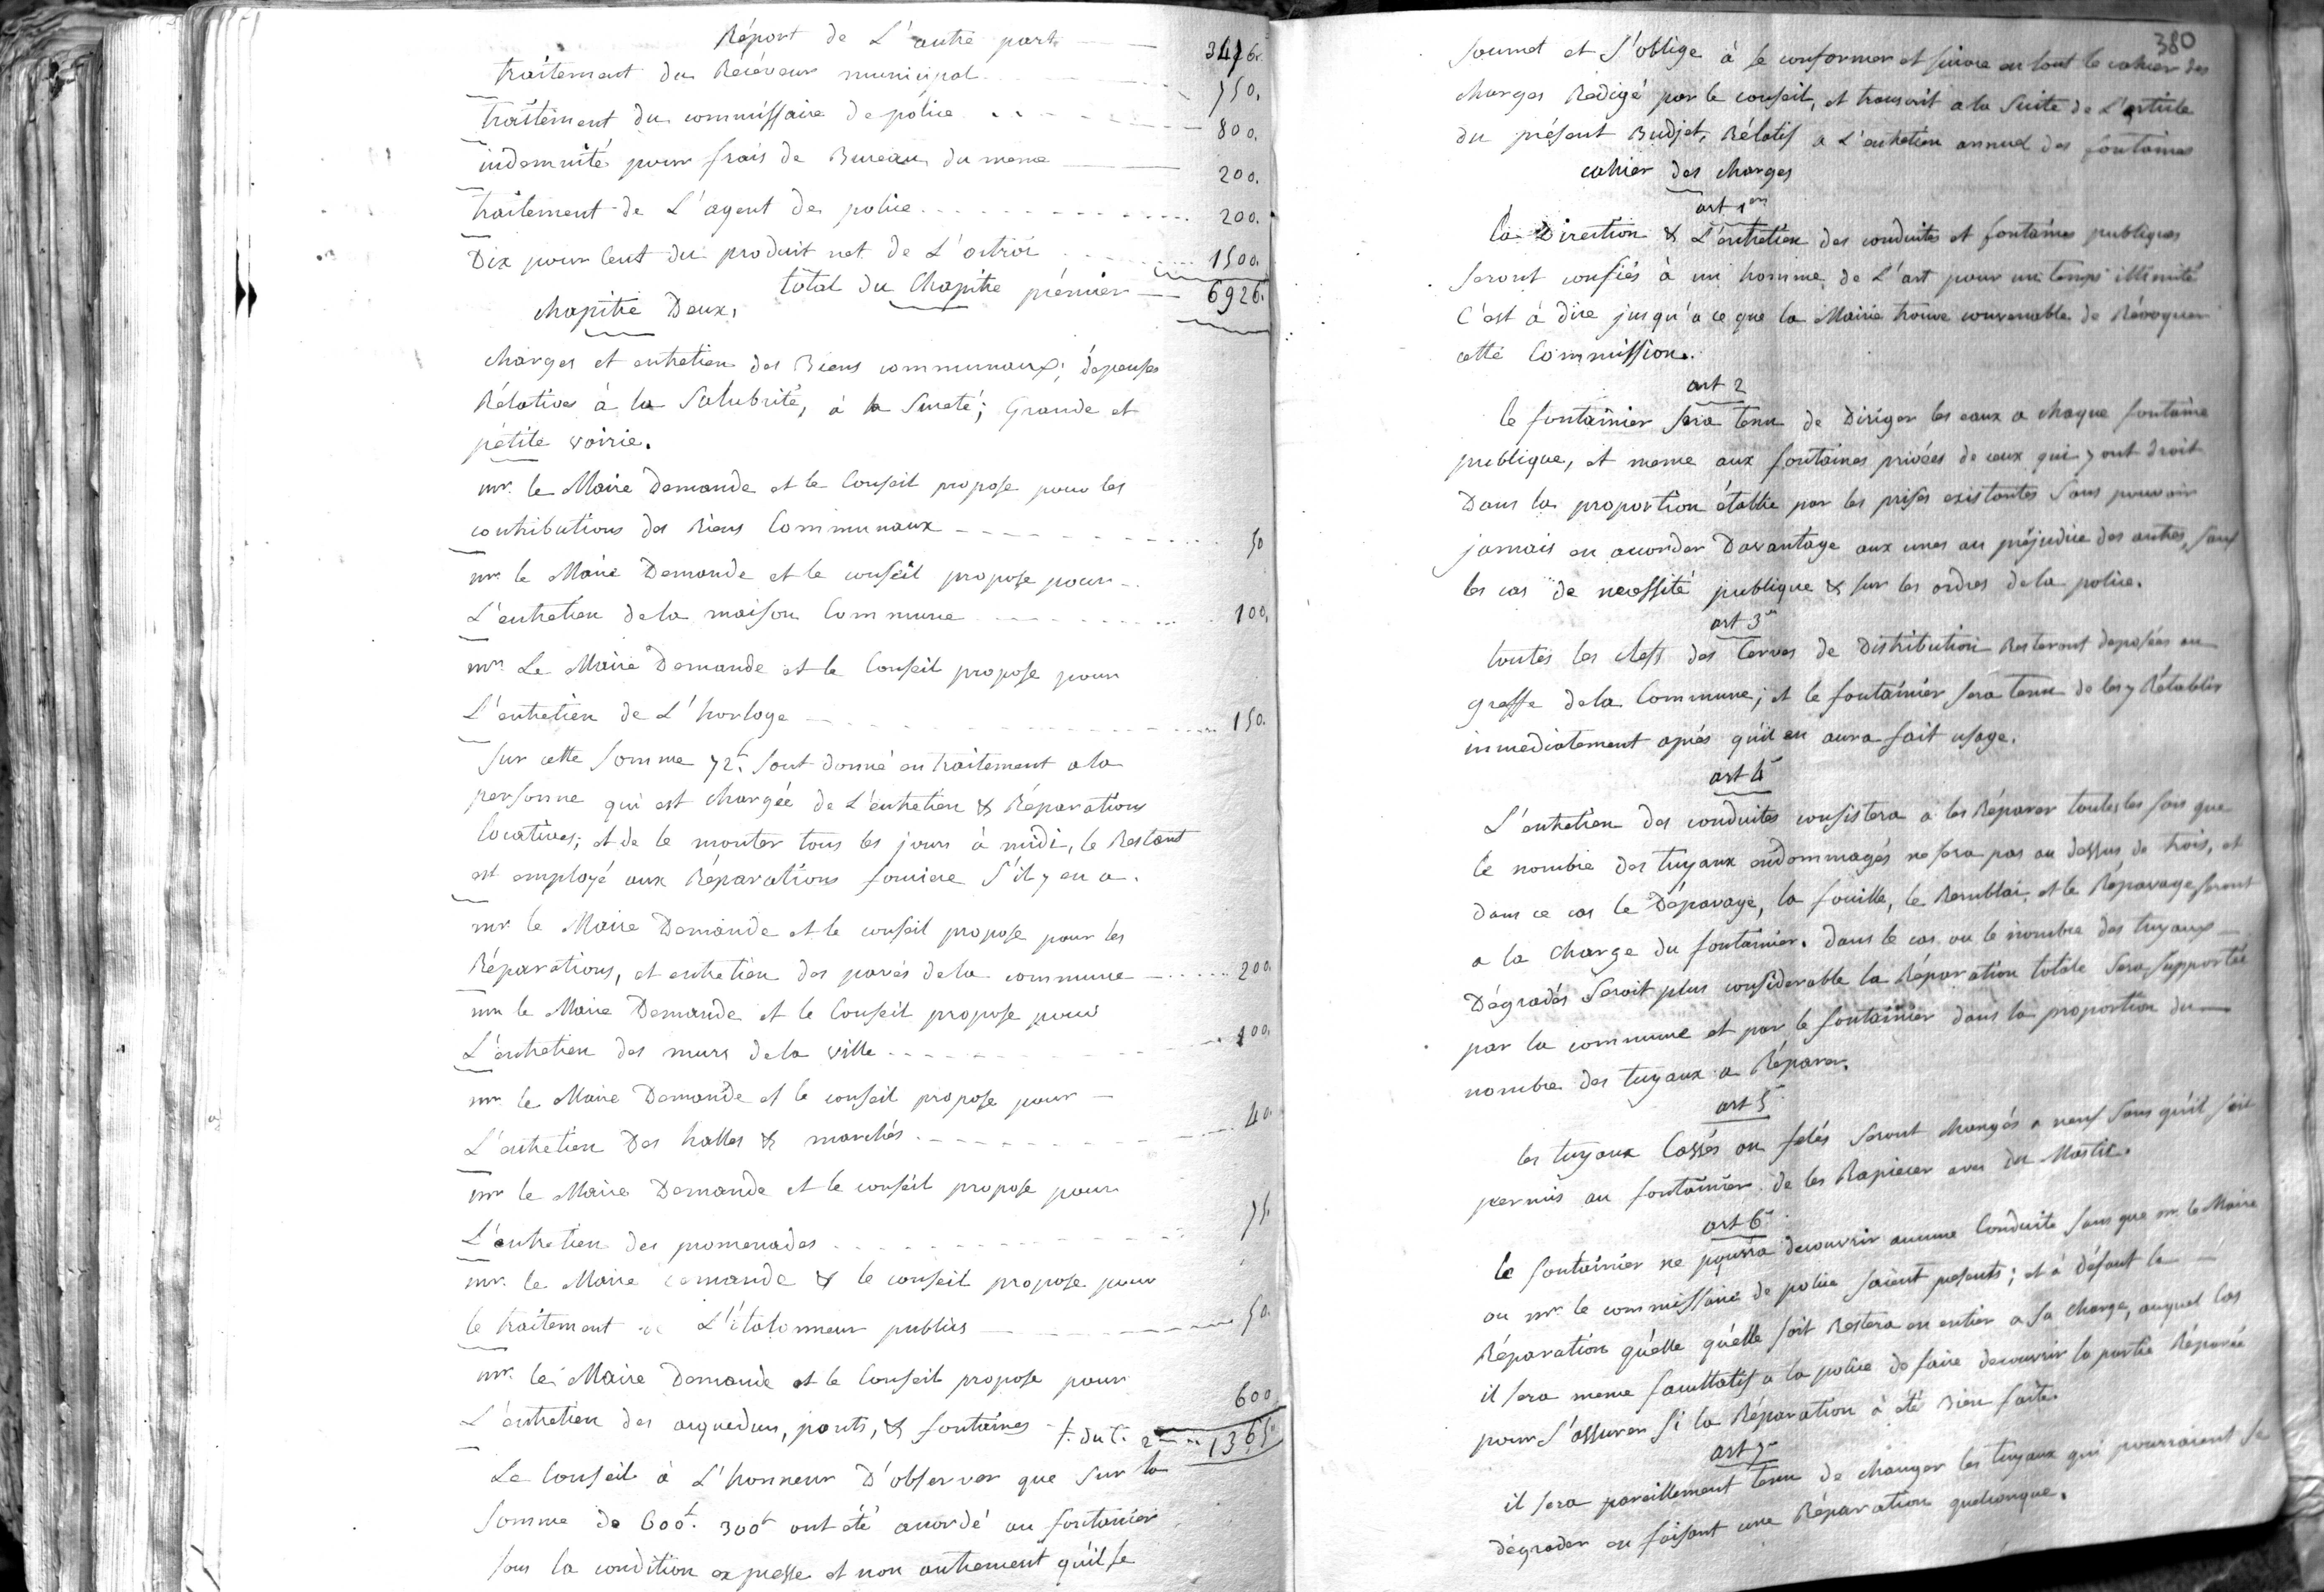 Réport de L'autre part 3476.
traitement du Récéveur municipal 750.
traitement du commissaire de police 800.
indemnité pour frais de Bureau du meme 200.
traitement de L'agent de police 200.
Dix pour Cent du produit net de L'octroi 1500.
total du Chapitre prémier 6926.
chapitre Deux,
charges et entretien des Biens communaux; dépenses
Rélatives à la Salubrité, à la Sureté; Grande et
pétite voirie.
mr. le Maire Demande et le Conseil propose pour les
contributions des Biens Communaux 50
mr. le Maire Demande et le conseil propose pour
L'entretien dela maison Commune 100.
mr. Le Maire Demande et le Conseil propose pour
L'entretien de L'horloge 150.
Sur cette Somme 72f. Sont donné en traitement ala
personne qui est chargée de L'entretien & Réparations
locatives; et de le monter tous les jours à midi, le Restant
est employé aux Réparations S'il y en a.
mr le Maire Demande et le conseil propose pour les
Réparations, et entretien des pavés dela commune 200.
mr le Maire Demande et le Conseil propose pour
L'entretien des murs dela ville 100.
mr. le Maire Demande et le conseil propose pour
L'entretien Des halles & marchés 40.
mr le Maire Demande et le conseil propose pour
L'entretien des promenades 75.
mr. le Maire demande & le conseil propose pour
le traitement de L'étalonneur publics 50.
mr. le Maire Demande et le Conseil propose pour
L'entretien des acqueducs, ponts, & fontaines 600
t. du C. 2 1365.
Le Conseil à L'honneur D'observer que Sur la
Somme de 600f. 300f ont été accordé au fontanier
sous la condition expresse et non autrement qu'il se
380
soumet et S'oblige à se conformer et suivre en tout le cahier des
charges Rédigé par le conseil, et transcrit ala Suite de L'article
du présent Budjet, Rélatif a L'entretien annuel des fontaines
cahier des charges
art 1er
la Direction & L'entretien des conduites et fontaines publiques
seront confiés à un homme de L'art pour un temps illimité
C'est à dire jusqu'a ce que la Mairie trouve convenable de Révoquer
cette Commission.
art 2
le fontainier sera tenu de Diriger les eaux a chaque fontaine
publique, et meme aux fontaines privées de ceux qui y ont droit
Dans la proportion établie par les prises existantes Sans pouvoir
jamais en accorder Davantage aux unes au préjudice des autres, sauf
les cas de necessité publique & sur les ordres dela police.
art 3
toutes les clefs des Serves de Distribution Resteront deposées au
greffe dela Commune; et le fontainier sera tenu de les y Rétablir
immediatement après qu'il en aura fait usage.
art 4
L'entretien des conduites consistera a les Réparer toutes les fois que
le nombre des tuyaux endommagés ne sera pas au dessus de trois, et
dans ce cas le Dépavage, la fouille, le Remblai, et le Répavage seront
a la charge du fontainier. dans le cas ou le nombre des tuyaux
Dégradés Seroit plus considerable la Réparation totale Sera Supportée
par la commune et par le fontainier dans la proportion du
nombre des tuyaux a Réparer.
art 5
les tuyaux Cassés ou felés seront changés a neuf Sans qu'il soit
permis au fontainier de les Rapiecer avec du Mastic.
art 6
le fontainier ne pourra decouvrir aucune Conduite sans que mr. le Maire
ou mr. le commissaire de police soient presents; et à défaut la
Réparation qu'elle qu'elle soit Restera en entier a sa charge, auquel Cas
il sera meme facultatif a la police de faire decouvrir la partie Réparée
pour S'assurer Si la Réparation à été Bien faite.
art 7
il sera pareillement tenu de changer les tuyaux qui pourroient Se
dégrader en faisant une Réparation quelconque.